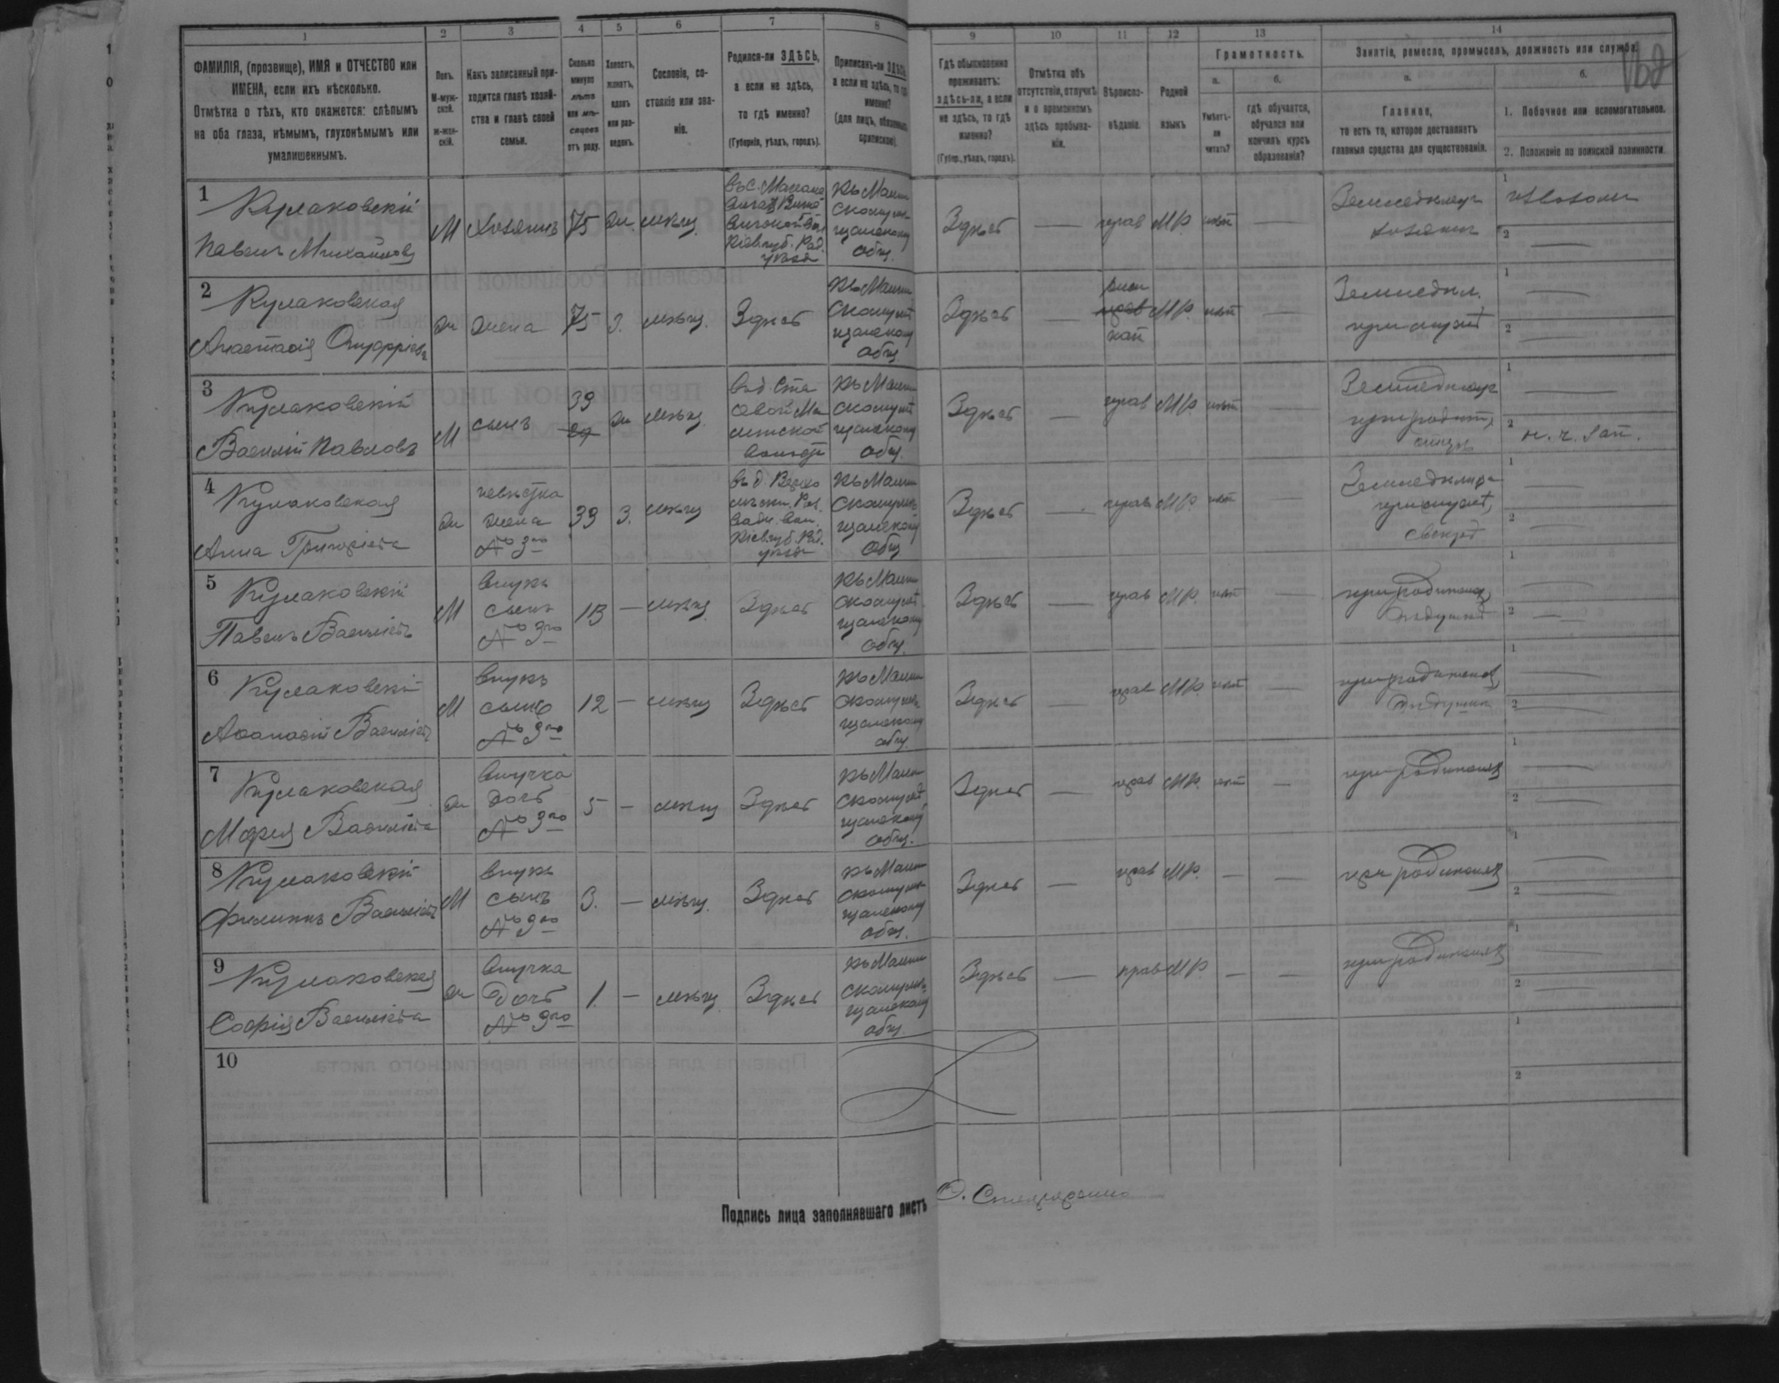 1 2 3 4 5 6 7 8 9 10 11 12 13 14
ФАМИЛІЯ, (прозвище), ИМЯ и ОТЧЕСТВО или
ИМЕНА, если ихъ нѣсколько.
Отмѣтка о тѣхъ, кто окажется: слѣпымъ
на оба глаза, нѣмымъ, глухонѣмымъ или
умалишеннымъ.
Полъ.
М-муж-
ской.
ж-жен-
скій.
Какъ записанный при-
ходится главѣ хозяй-
ства и главѣ своей
семьи.
Сколько
минуло
лѣтъ
или мѣ-
сяцевъ
отъ роду.
Холостъ,
женатъ,
вдовъ
или раз-
веденъ.
Сословіе, со-
стояніе или зва-
ніе.
Родился-ли ЗДѢСЬ,
а если не здѣсь,
то гдѣ именно?
(Губернія, уѣздъ, городъ).
Приписанъ-ли ЗДѢСЬ,
а если не здѣсь, то гдѣ
именно?
(для лицъ, обязанныхъ
припиской).
Гдѣ обыкновенно
проживаетъ:
здѣсь-ли, а если
не здѣсь, то гдѣ
именно?
(Губер., уѣздъ, городъ).
Отмѣтка объ
отсутствіи, отлучкѣ
и о временномъ
здѣсь пребыва-
ніи.
Вѣроиспо-
вѣданіе.
Родной
языкъ.
Грамотность.
а.
Умѣетъ-
ли
читать?
б.
гдѣ обучается,
обучался или
кончилъ курсъ
образованія?
Занятіе, ремесло, промыселъ, должность или служба.
а.
Главное,
то есть то, которое доставляетъ
главныя средства для существованія.
б.
1. Побочное или вспомогательное.
2. Положеніе по воинской повинности.
1
Кулаковскій
Павелъ Михайловъ
М Хозяинъ 75 ж. мѣщ.
Кіев. губ. Рад.
уѣзд
къ Малин
скому мѣ
щанскому
общ.
Здѣсь — прав М/р нѣт —
Земледѣлецъ
хозяинъ
1
2 —
2
Кулаковская
Анастасія Онуфріева
ж жена 75 З. мѣщ. Здѣсь
къ Малин
скому мѣ
щанскому
общ.
Здѣсь — М/р. нѣт —
Земледѣл.
при мужѣ
1 —
2 —
3
Кулаковскій
Василій Павловъ
М сынъ 39 ж мѣщ.
къ Малин
скому мѣ
щанскому
общ.
Здѣсь — прав М/р нѣт —
Земледѣлецъ
1 —
2 н. ч. зап.
4
Кулаковская
Анна Григоріева
ж
невѣстка
жена
№ 3го
39 З. мѣщ
Кіев губ. Рад.
уѣзд
къ Малин
скому мѣ
щанскому
общ
Здѣсь — прав М/р нѣт —
при мужѣ,
1 —
2 —
5
Кулаковскій
Павелъ Васильевъ
М
внукъ
сынъ
№ 3го
13 — мѣщ Здѣсь
къ Малин
скому мѣ
щанскому
общ.
Здѣсь — прав М/р. нѣт —
1 —
2 —
6
Кулаковскій
Афанасій Васильевъ
М
внукъ
сынъ
№ 3го
12 — мѣщ Здѣсь
къ Малин
скому мѣ
щанскому
общ
Здѣсь — прав М/р нѣт —
1 —
2 —
7
Кулаковская
Марія Васильева
ж
внучка
дочь
№ 3го
5 — мѣщ Здѣсь
къ Малин
скому мѣ
щанскому
общ.
Здѣсь — прав М/р. нѣт —
при родителях
1 —
2 —
8
Кулаковскій
Филиппъ Васильевъ
М
внукъ
сынъ
№ 3го
3. — мѣщ. Здѣсь
къ Малин
скому мѣ
щанскому
общ.
Здѣсь — прав М/р. — —
при родителях
1 —
2
9
Кулаковская
Софія Васильева
ж
внучка
дочь
№ 3го
1. — мѣщ. Здѣсь
къ Малин
скому мѣ
щанскому
общ
Здѣсь — прав М/р — —
при родителях
1 —
2 —
10
1
2
Подпись лица заполнявшаго листъ